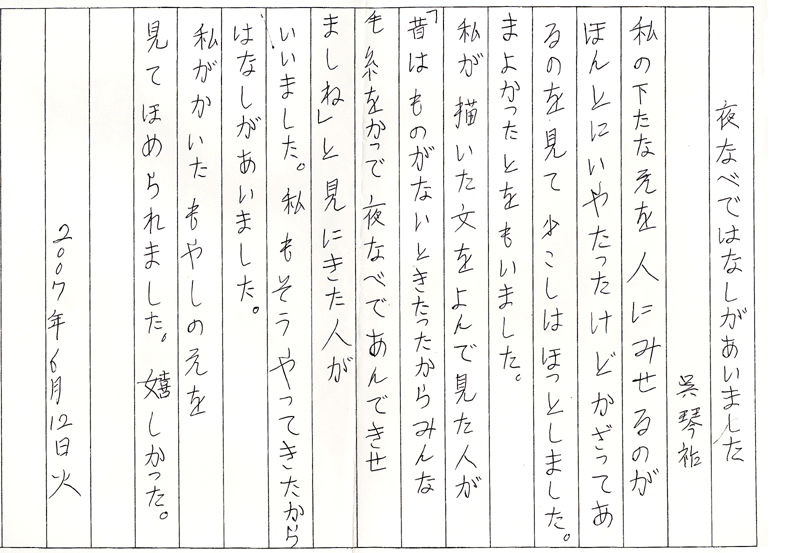 夜なべではなしがあいました
呉琴祐
私の下たなえを人にみせるのが
ほんとにいやたったけどかざってあ
るのを見て少こしはほっとしました。
まよかったとをもいました。
私が描いた文をよんで見た人が
「昔はものがないときたったからみんな
毛糸をかって夜なべであんできせ
ましね」と見にきた人が
いいました。私もそうやってきたから
はなしがあいました。
私がかいたもやしのえを
見てほめられました。嬉しかった。
2007年6月12日火